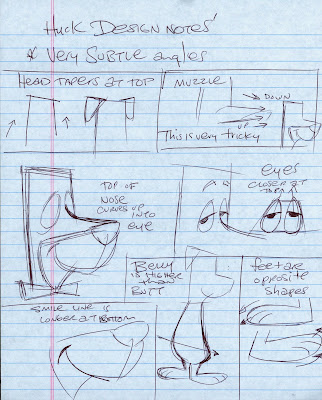 Huck Design Notes
* Very Subtle angles
HEAD TAPERS AT TOP
MUZZLE
DOWN
UP
This is very tricky
TOP OF
NOSE
CURVES UP
INTO
EYE
EYES
CLOSER AT
TOP
BELLY
IS HIGHER
THAN
BUTT
feet are
opposite
shapes
SMILE LINE IS
LONGER AT BOTTOM